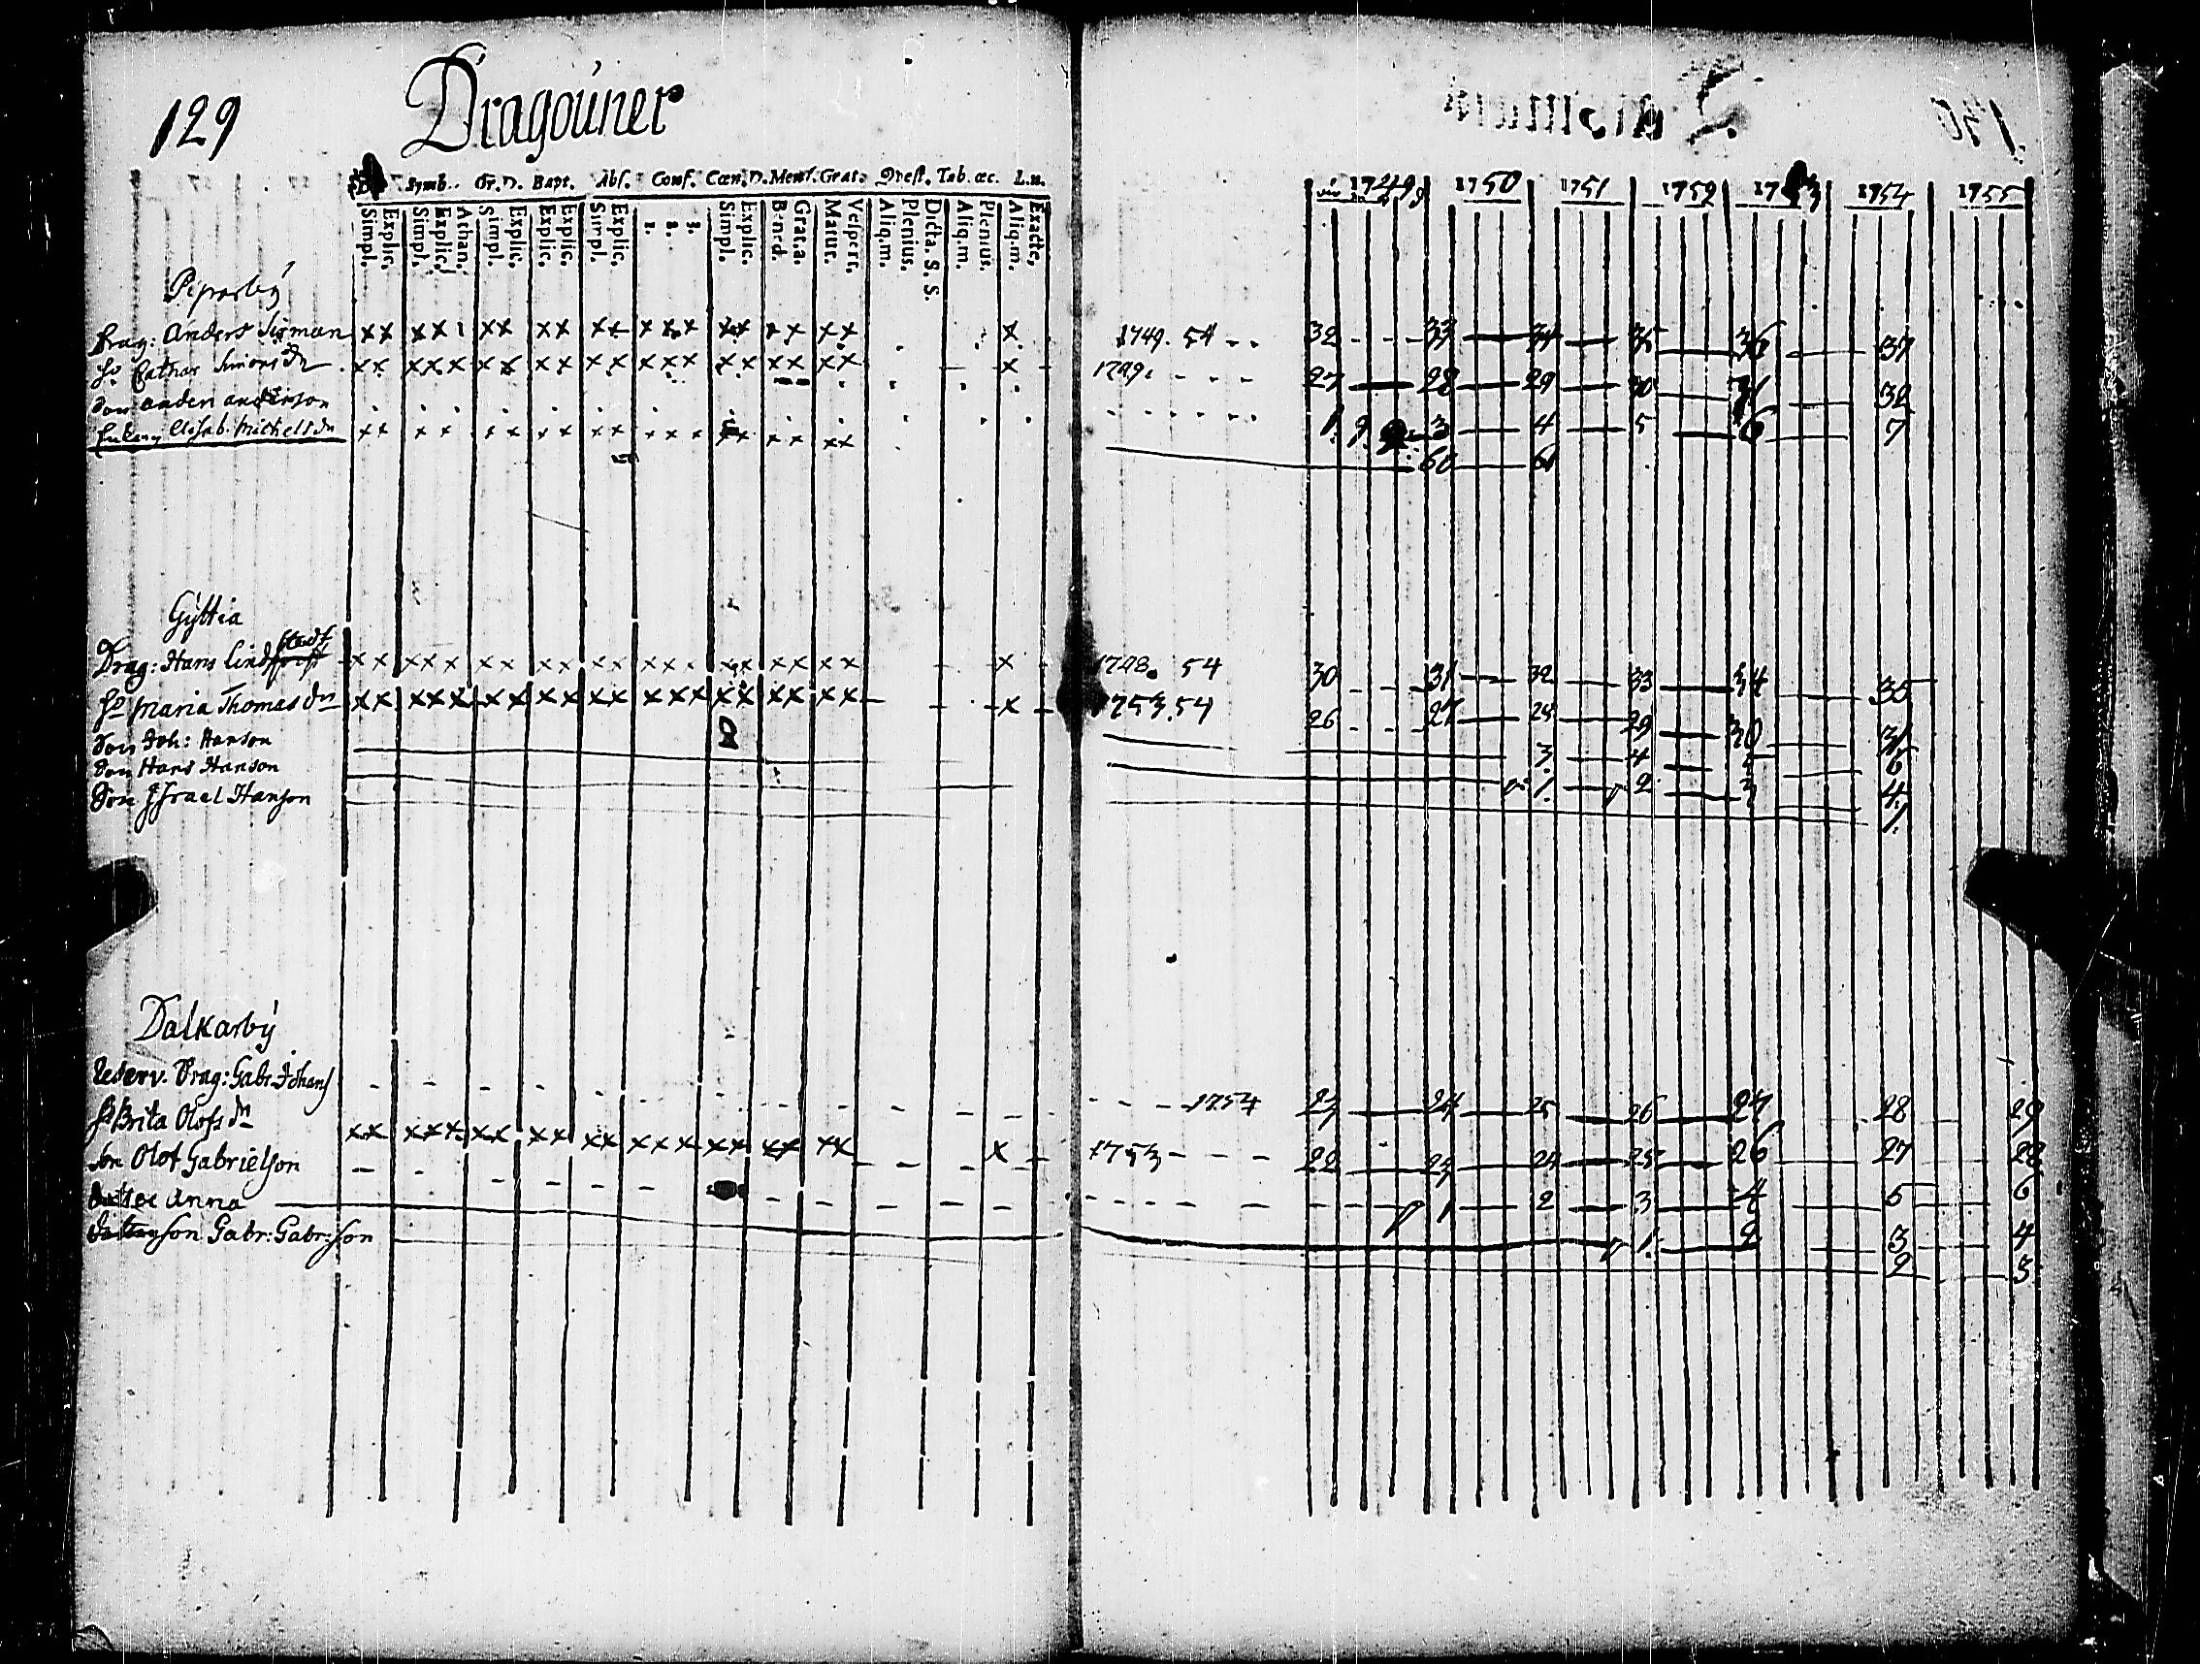 129 Dragouner
Symb. Or. D. Bapt. Abs. Conf. Cœn. D. Mens. Grat. Quest. Tab. œc. L. n.
Simpl. Explic. Simpl. Explic. Athan. Simpl. Explic. Explic. Explic. Simpl. Explic. 1. 2. 3. Simpl. Explic. Bened. Grat. a. Matut. Vesper. Aliq. m. Plenius. Dicta. S. S. Aliq. m. Plenius. Aliq. m. Exacte,
1749 1750 1751 1752 1753 1754 1755
Piparby
Drag: Anders Sigman x x x x x x x x x x x x x x x x x x x 1749. 54 32 33 34 35 36 37
Hu Cathar Simons dr x x x x x x x x x x x x x x x x x x x x 1749. 27 28 29 30 31 32
Son Anders Anderson 1 2 3 4 5 6 7
Elisab. Michels dr x x x x x x x x x x x x x x x x x x 60 61
Gyttia
Drag: Hans Lind stedt x x x x x x x x x x x x x x x x x x x 1728. 54 30 31 32 33 34 35
Hu Maria Thomas dr x x x x x x x x x x x x x x x x x x x x x 1753. 54 26 27 28 29 30 31
Son Joh: Hanson 3 4 5 6
Son Hans Hanson 1 2 3 4
Son Israel Hanson 1
Dalkarby
Reserv. Drag: Gabr. Johans 1754 23 24 25 26 27 28 29
Hu Brita Olofs dr x x x x x x x x x x x x x x x x x x x x x 1753 22 23 24 25 26 27 28
Son Olof Gabrielson 1 2 3 4 5 6
Dotter Anna 1 2 3 4
son Gabr: Gabr:son 2 3